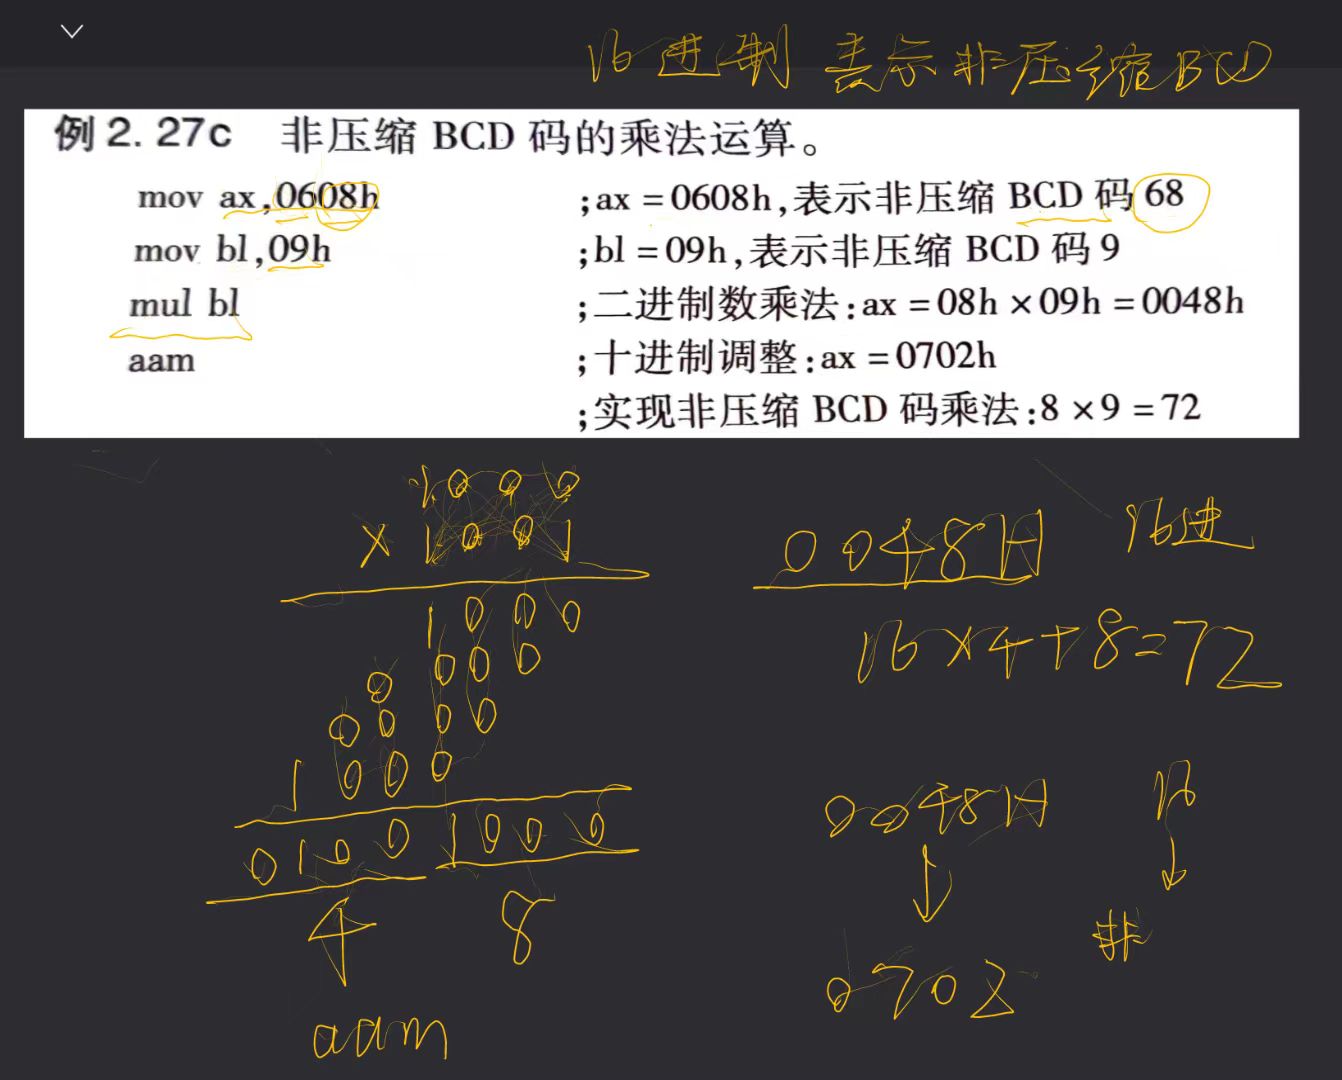 16进制 表示非压缩BCD
例 2.27c 非压缩 BCD 码的乘法运算。
mov ax,0608h ;ax = 0608h,表示非压缩 BCD 码 68
mov bl,09h ;bl = 09h,表示非压缩 BCD 码 9
mul bl ;二进制数乘法:ax = 08h × 09h = 0048h
aam ;十进制调整:ax = 0702h
;实现非压缩 BCD 码乘法:8 × 9 = 72
1000
× 1001
1000
0000
0000
1000
0100 1000
4 8
aam
0048H 16进
16×4+8=72
0048H 16
↓ ↓
0702 非